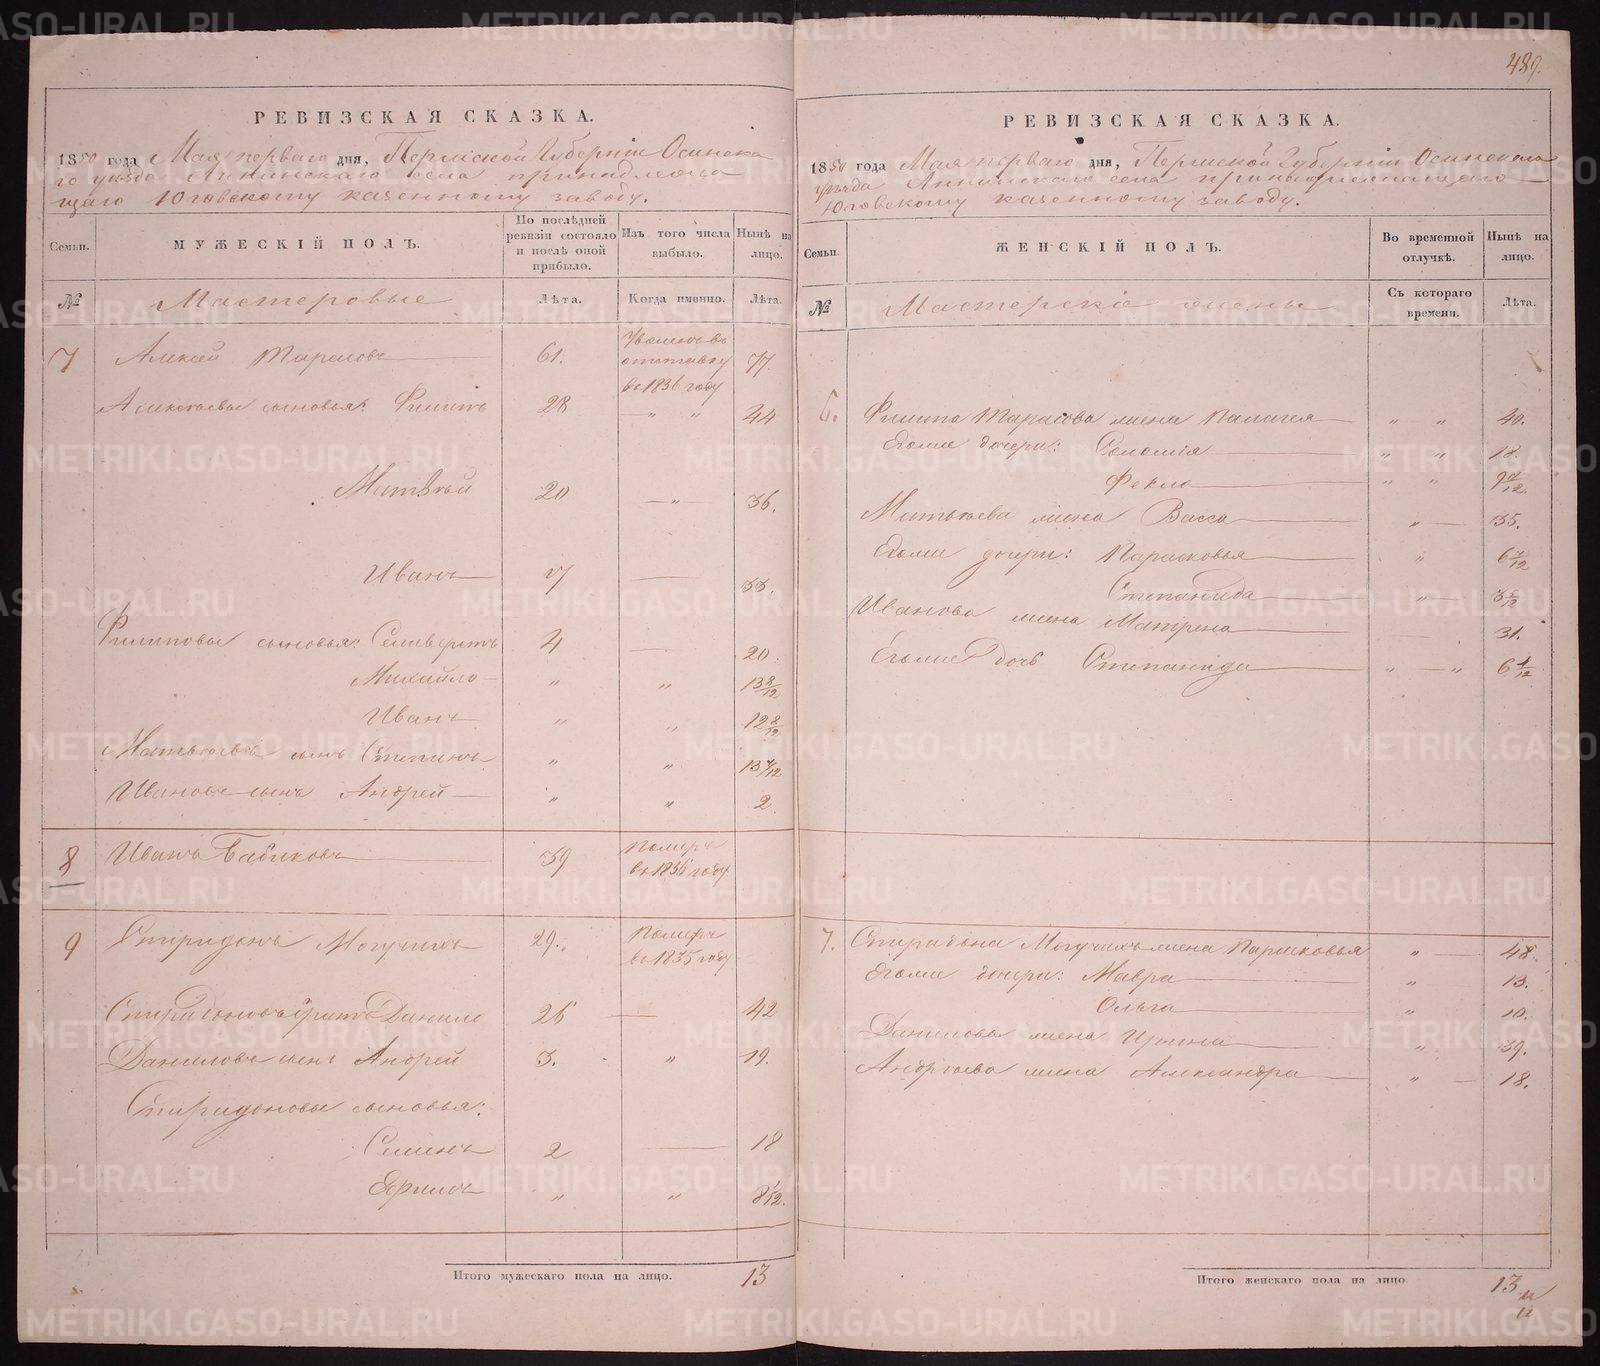 489.
РЕВИЗСКАЯ СКАЗКА.
1850 года Мая перваго дня, Пермской Губерніи Осинска
го уѣзда Аннинскаго села принадлежа
щаго Юговскому казенному заводу.
Семьи.
МУЖЕСКІЙ ПОЛЪ.
По послѣдней ревизіи состояло и послѣ оной прибыло.
Изъ того числа выбыло.
Нынѣ на лицо.
№
Мастеровые
Лѣта.
Когда именно.
Лѣта.
7 Алексѣй Тарасовъ 61. Уволенъ въ отставку въ 1836 году 77.
Алексѣевы сыновья: Филипъ 28 — " " 44
Матвѣй 20 — " — 36.
Иванъ 17 — 33.
Филиповы сыновья: Селиверстъ 4 — 20.
Михайло — " " 13 8/12
Иванъ — " " 12 8/12
Матвѣевъ сынъ Степанъ " " 13 7/12
Ивановъ сынъ Андрей — " " 2
8 Иванъ Бабиковъ 39 Померъ въ 1836 году
9 Спиридонъ Могучихъ 29. Померъ въ 1835 году
Спиридоновъ братъ Данило 26 — 42
Даниловъ сынъ Андрей 3. " 19.
Спиридоновы сыновья:
Семенъ 2 — 18
Ефимъ " " 8 1/12.
Итого мужескаго пола на лицо. 13
РЕВИЗСКАЯ СКАЗКА.
1850 года Мая перваго дня, Пермской Губерніи Осинскаго
уѣзда Аннинскаго села принадлежащаго
Юговскому казенному заводу.
Семьи.
ЖЕНСКІЙ ПОЛЪ.
Во временной отлучкѣ.
Нынѣ на лицо.
№
Мастерскіе жены
Съ котораго времени.
Лѣта.
6. Филипа Тарасова жена Палагея " — " 40.
Егоже дочери: Соломія " " 18.
Фекла " " 9 7/12.
Матвѣева жена Васса " — 35.
Егоже дочери: Парасковья " 6 7/12
Степанида " — 3 5/12
Иванова жена Матрена 31.
Егоже дочь Степанида " — " 6 4/12
7. Спиридона Могучихъ жена Парасковья " — 48.
Егоже дочери: Мавра " 13.
Ольга " 10.
Данилова жена Ирина " 39.
Андреева жена Александра " — 18.
Итого женскаго пола на лицо. 13
METRIKI.GASO-URAL.RU